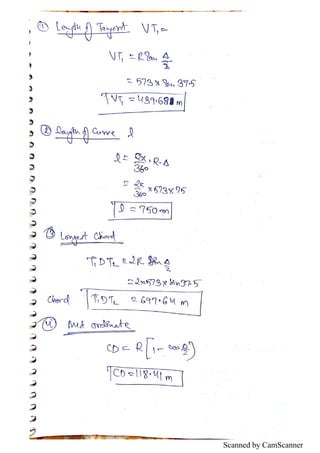 ① Length of Tangent VT₁ =
VT₁ = R tan Δ/2
= 573 × tan 37.5
VT₁ = 439.681 m
② Length of Curve l
l = 2π/360 . R. Δ
= 2π/360 × 573 × 75
l = 750 m
③ Longest Chord
T₁DT₂ = 2R sin Δ/2
= 2×573 × sin 37.5
Chord T₁DT₂ = 697.64 m
④ Mid ordinate
CD = R [1 - cos Δ/2]
CD = 118.41 m
Scanned by CamScanner